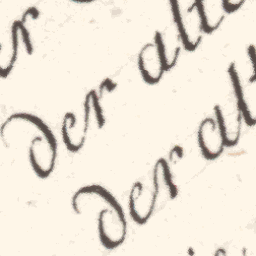 der alte
der alt